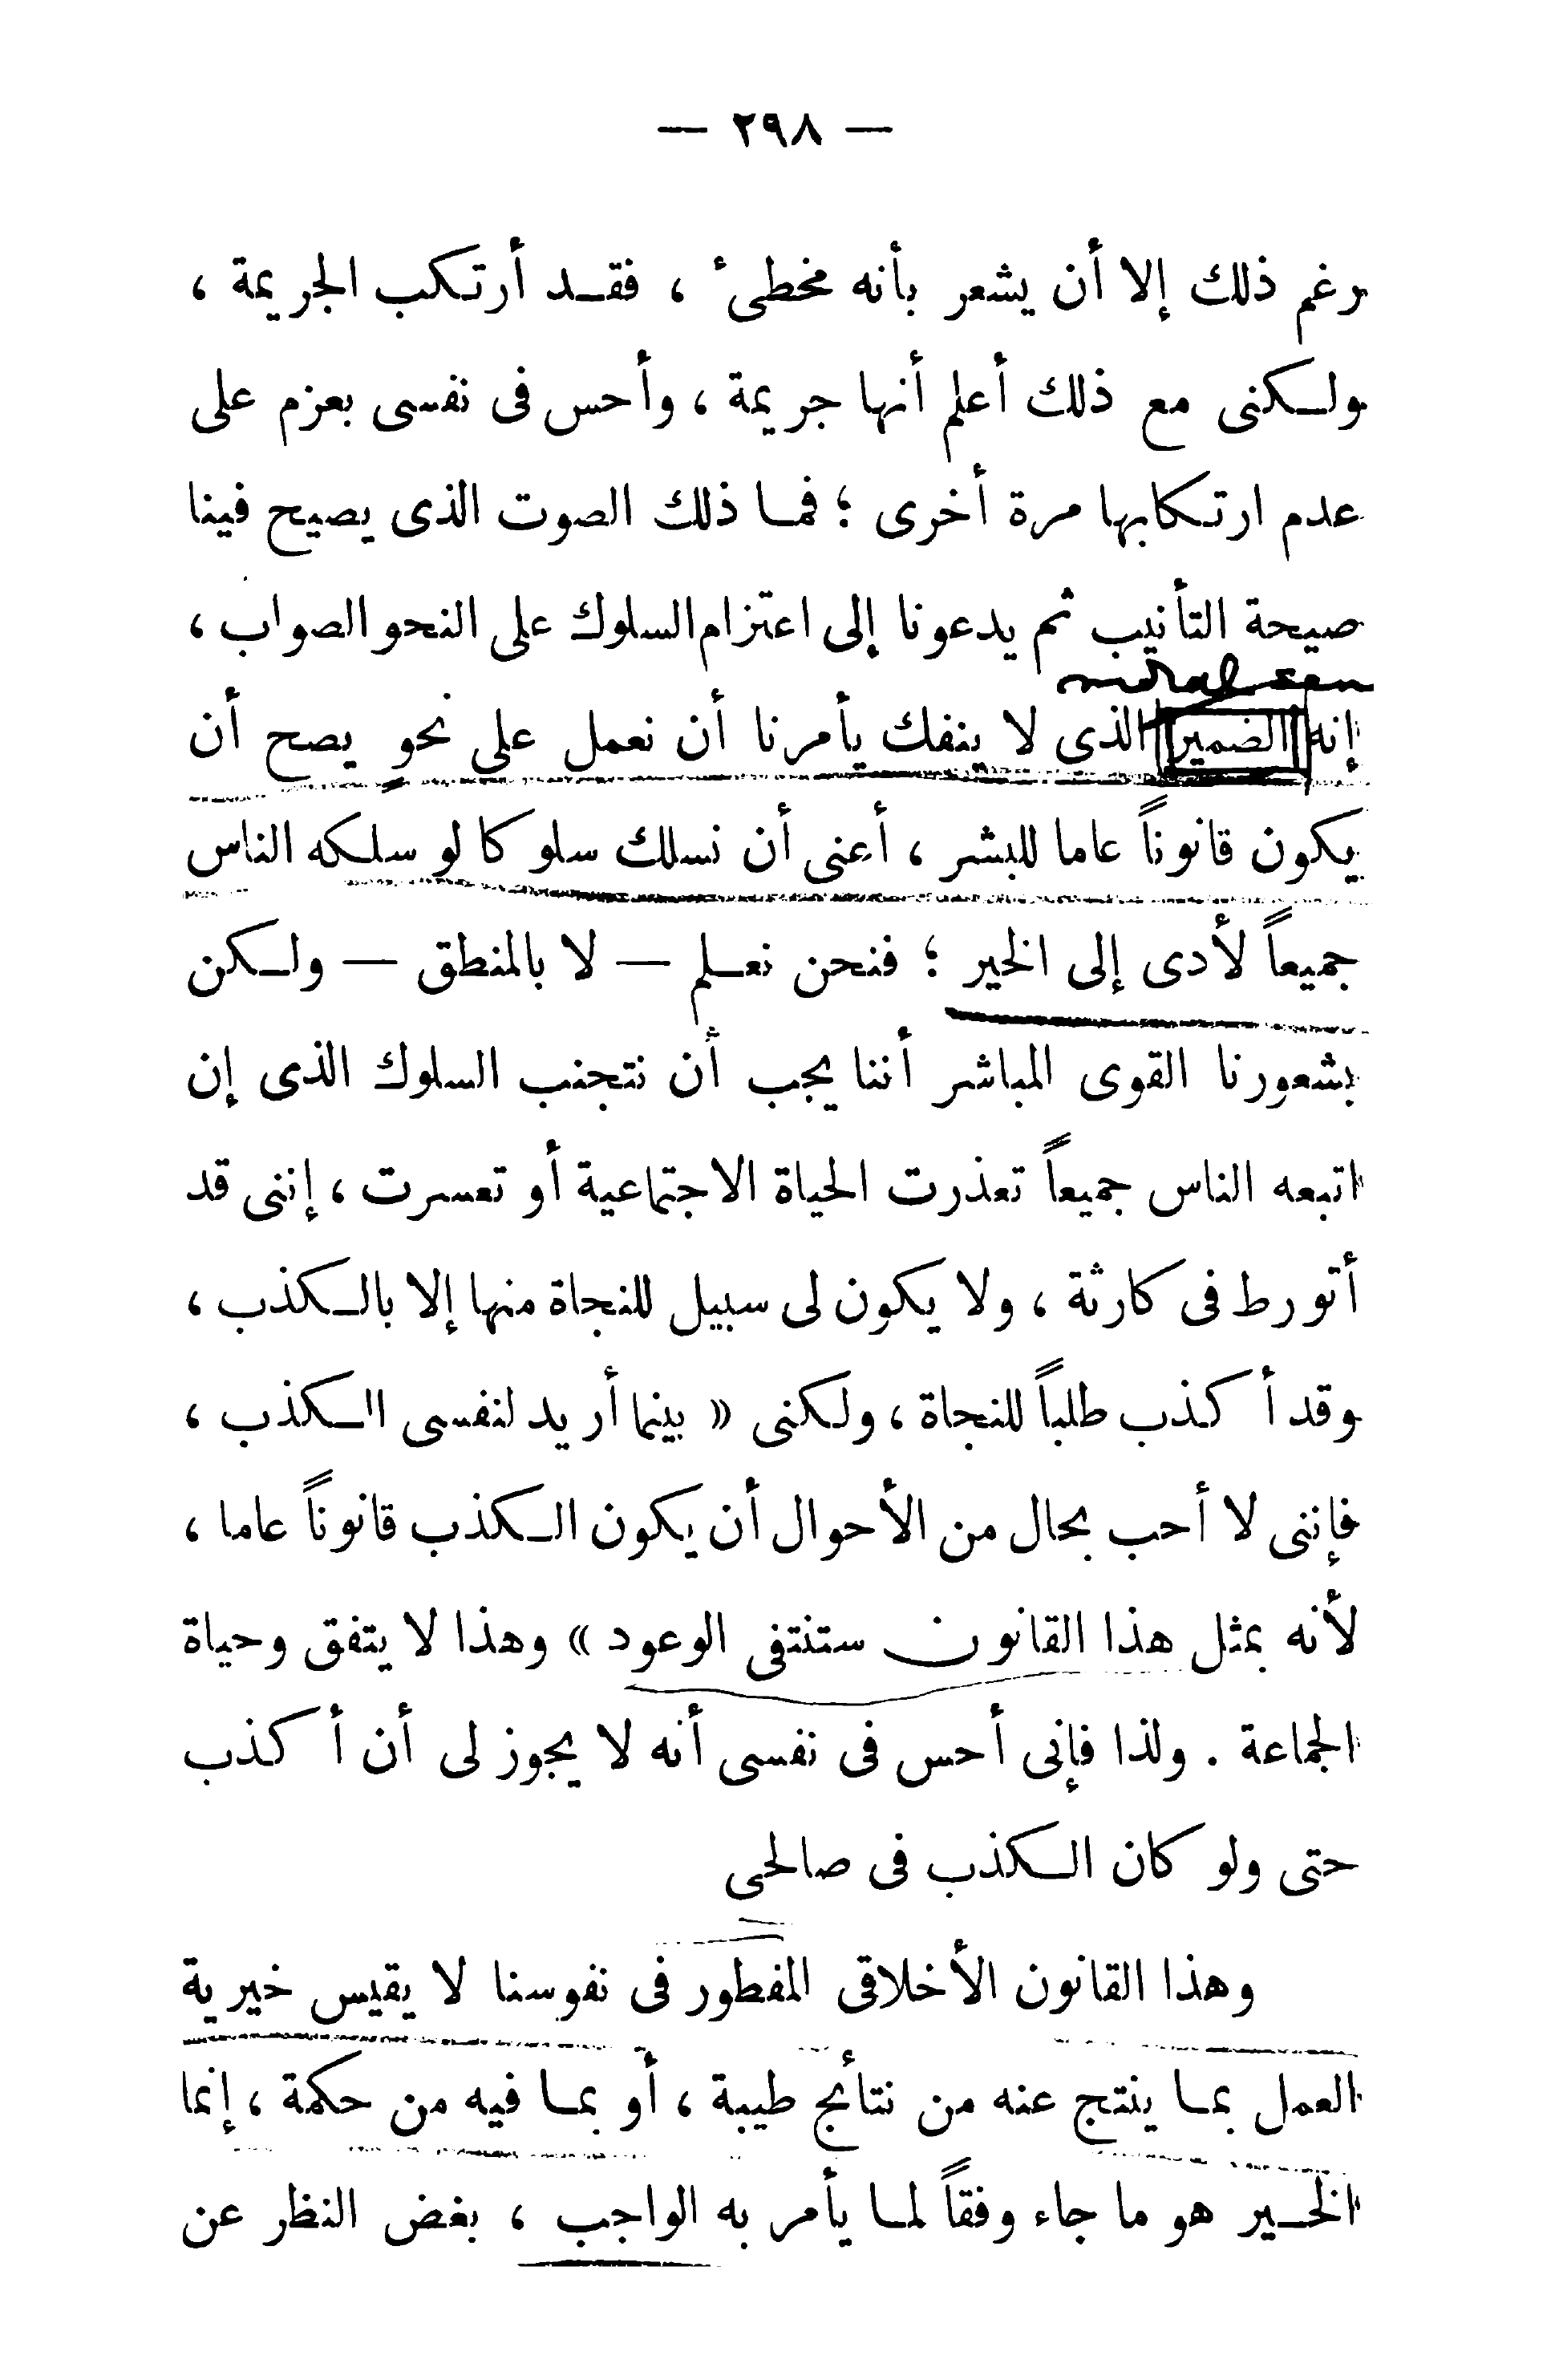 — ٢٩٨ —
رغم ذلك إلا أن يشعر بأنه مخطىء ، فقد أرتكب الجريمة ،
ولكنى مع ذلك أعلم أنها جريمة ، وأحس فى نفسى بعزم على
عدم ارتكابها مرة أخرى ؛ فما ذلك الصوت الذى يصيح فينا
صيحة التأنيب ثم يدعونا إلى اعتزام السلوك على النحو الصواب ،
moral sen
إنه الضمير الذى لا ينفك يأمرنا أن نعمل على نحو يصح أن
يكون قانوناً عاما للبشر ، أعنى أن نسلك سلوكا لو سلكه الناس
جميعاً لأدى إلى الخير ؛ فنحن نعلم — لا بالمنطق — ولكن
بشعورنا القوى المباشر أننا يجب أن نتجنب السلوك الذى إن
اتبعه الناس جميعاً تعذرت الحياة الاجتماعية أو تعسرت ، إننى قد
أتورط فى كارثة ، ولا يكون لى سبيل للنجاة منها إلا بالكذب ،
وقد أكذب طلباً للنجاة ، ولكنى « بينما أريد لنفسى الكذب ،
فإننى لا أحب بحال من الأحوال أن يكون الكذب قانوناً عاما ،
لأنه بمثل هذا القانون ستنتفى الوعود » وهذا لا يتفق وحياة
الجماعة . ولذا فإنى أحس فى نفسى أنه لا يجوز لى أن أكذب
حتى ولو كان الكذب فى صالحى
وهذا القانون الأخلاقى المفطور فى نفوسنا لا يقيس خيرية
العمل بما ينتج عنه من نتائج طيبة ، أو بما فيه من حكمة ، إنما
الخير هو ما جاء وفقاً لما يأمر به الواجب ، بغض النظر عن